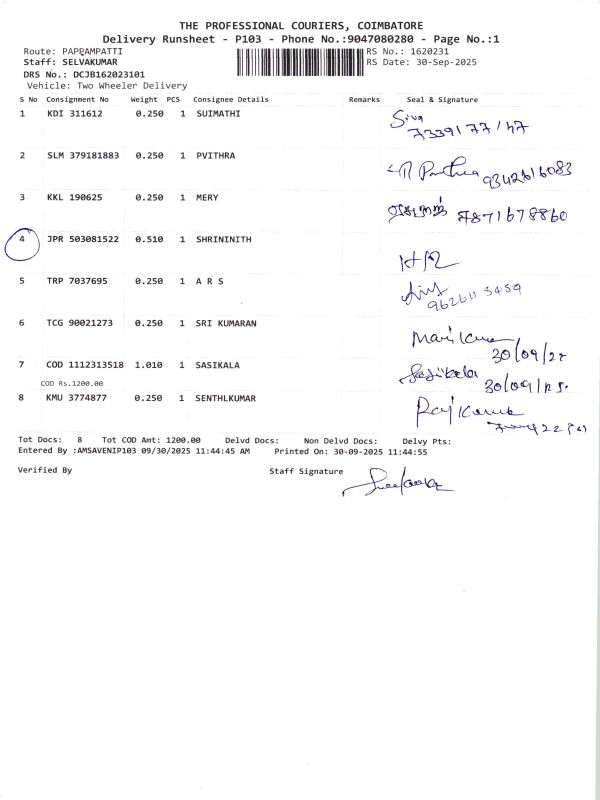 THE PROFESSIONAL COURIERS, COIMBATORE
Delivery Runsheet - P103 - Phone No.:9047080280 - Page No.:1
Route: PAPPAMPATTI
RS No.: 1620231
Staff: SELVAKUMAR
RS Date: 30-Sep-2025
DRS No.: DCJB162023101
Vehicle: Two Wheeler Delivery
S No Consignment No Weight PCS Consignee Details Remarks Seal & Signature
1 KDI 311612 0.250 1 SUIMATHI Siva
2 SLM 379181883 0.250 1 PVITHRA
3 KKL 190625 0.250 1 MERY
7871678860
4 JPR 503081522 0.510 1 SHRININITH
5 TRP 7037695 0.250 1 A R S
6 TCG 90021273 0.250 1 SRI KUMARAN
30/09/25
7 COD 1112313518 1.010 1 SASIKALA Sasikala
COD Rs.1200.00 30/09/25.
8 KMU 3774877 0.250 1 SENTHLKUMAR
Tot Docs: 8 Tot COD Amt: 1200.00 Delvd Docs: Non Delvd Docs: Delvy Pts:
Entered By :AMSAVENIP103 09/30/2025 11:44:45 AM Printed On: 30-09-2025 11:44:55
Verified By Staff Signature